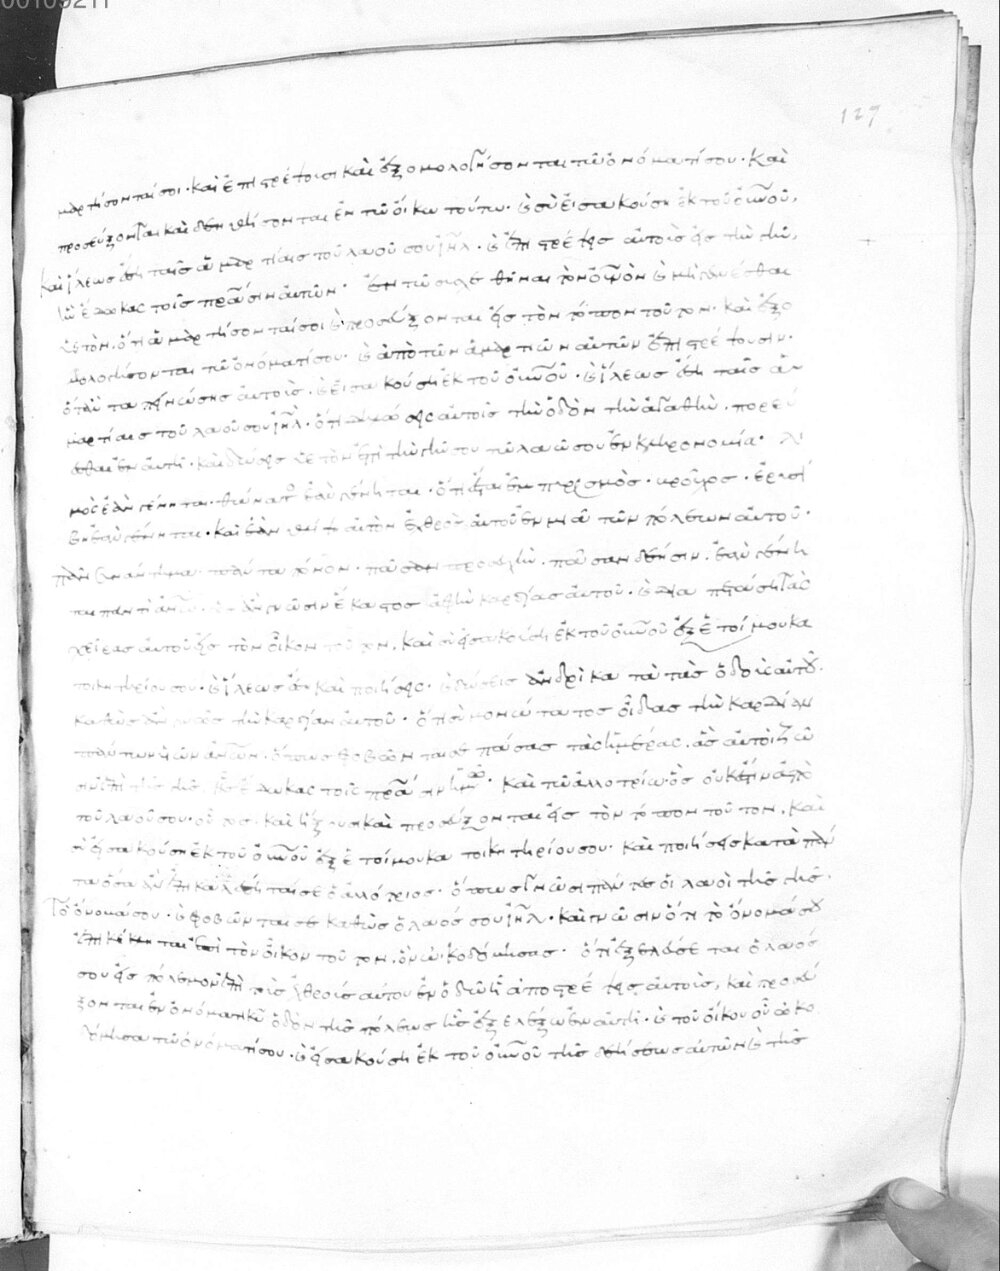 127
μαρτήσονταί σοι· καὶ ἐπιστρέψουσι καὶ ἐξομολογήσονται τῶ ὀνόματί σου· καὶ
προσεύξονται καὶ δεηθήσονται ἐν τῶ οἴκω τούτω· καὶ σὺ εἰσακούση ἐκ τοῦ οὐνοῦ,
καὶ ἵλεως ἔση ταῖς ἁμαρτίαις τοῦ λαοῦ σου ἰηλ· καὶ ἐπιστρέψεις αὐτοὺς εἰς τὴν γῆν,
ἣν ἔδωκας τοῖς πρασιν αὐτῶν· ἐν τῶ συσχεθῆναι τὸν οὐνὸν καὶ μὴ γενέσθαι
ὑετὸν, ὅτι ἁμαρτήσονταί σοι καὶ προσεύξονται εἰς τὸν τόπον τοῦτον· καὶ ἐξο
μολογήσονται τῶ ὀνόματί σου· καὶ ἀπὸ τῶν ἁμαρτιῶν αὐτῶν ἐπιστρέψουσιν·
ὅταν ταπεινώσης αὐτοὺς· καὶ εἰσακούση ἐκ τοῦ οὐνοῦ· καὶ ἵλεως ἔση ταῖς ἁ
μαρτίαις τοῦ λαοῦ σου ἰηλ· ὅτι δηλώσεις αὐτοῖς τὴν ὁδὸν τὴν ἀγαθὴν· πορεύ
εσθαι ἐν αὐτῆ· καὶ δώσεις ὑετὸν ἐπὶ τὴν γῆν σου τῶ λαῶ σου ἐν κληρονομία· λι
μὸς ἐὰν γένηται· θάνατος ἐὰν γένηται· ὅτι ἔσται ἐμπυρισμὸς· βροῦχος· ἐρυσί
βη ἐὰν γένηται· καὶ ἐὰν θλίψη αὐτὸν ἐχθρὸς αὐτοῦ ἐν μιᾶ τῶν πόλεων αὐτοῦ·
πᾶν συνάντημα· πᾶσαν προσευχὴν· πᾶσαν δέησιν· ἐὰν γένη
ται παντὶ ἀνῶ· γνῶσιν ἕκαστος ἁφὴν καρδίας αὐτοῦ· καὶ διαπετάση τὰς
χεῖρας αὐτοῦ εἰς τὸν οἶκον τοῦτον, καὶ σὺ εἰσακούση ἐκ τοῦ οὐνοῦ ἐξ ἑτοίμου κα
τοικητηρίου σου· καὶ ἵλεως ἔση καὶ ποιήσεις· καὶ δώσεις ἀνδρὶ κατὰ τὰς ὁδοὺς αὐτοῦ·
καθὼς ἂν γνῶς τὴν καρδίαν αὐτοῦ· ὅτι σὺ μονώτατος οἶδας τὴν καρδίαν
πάντων υἱῶν ἀνων· ὅπως φοβῶνταί σε πάσας τὰς ἡμέρας· ἃς αὐτοὶ ζῶ
σιν ἐπὶ τῆς γῆς, ἧς ἔδωκας τοῖς πρασιν ἡμῶν· καὶ τῶ ἀλλοτρίω· ὃς οὐκ ἔστιν ἀπὸ
τοῦ λαοῦ σου· οὗτος· καὶ ἥξουσι καὶ προσεύξονται εἰς τὸν τόπον τοῦτον, καὶ
σὺ εἰσακούση ἐκ τοῦ οὐνοῦ ἐξ ἑτοίμου κατοικητηρίου σου· καὶ ποιήσεις κατὰ πάν
τα ὅσα ἂν ἐπικαλέσηταί σε ὁ ἀλλότριος· ὅπως γνῶσι πάντες οἱ λαοὶ τῆς γῆς·
τὸ ὄνομά σου· καὶ φοβῶνταί σε καθὼς ὁ λαός σου ἰηλ· καὶ γνῶσιν ὅτι τὸ ὄνομά σου
ἐπικέκληται ἐπὶ τὸν οἶκον τοῦτον, ὃν ὠκοδόμησας· ὅτι ἐξελεύσεται ὁ λαός
σου εἰς πόλεμον ἐπὶ τοὺς ἐχθροὺς αὐτοῦ ἐν ὁδῶ ἧ ἀποστρέψεις αὐτοὺς, καὶ προσεύ
ξονται ἐν ὀνόματι κυ ὁδὸν τῆς πόλεως ἧς ἐξελέξω ἐν αὐτῆ· καὶ τοῦ οἴκου οὗ ὠκο
δόμησα τῶ ὀνόματί σου· καὶ εἰσακούση ἐκ τοῦ οὐνοῦ τῆς δεήσεως αὐτῶν καὶ τῆς